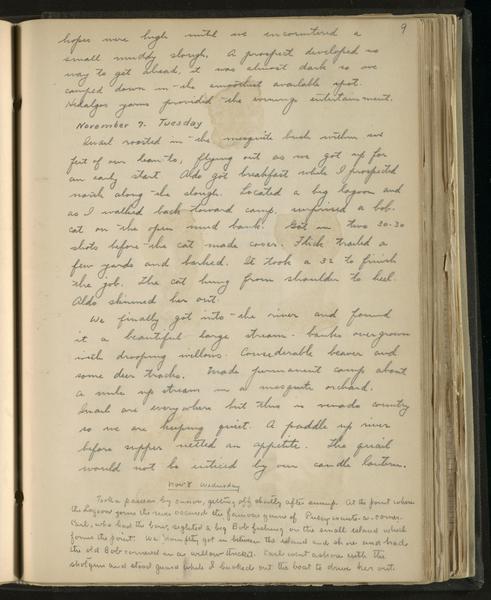 9
hopes were high until we encountered a
small muddy slough. A prospect developed no
way to get ahead, it was almost dark so we
camped down in the smoothest available spot.
Hidalgos yarns provided the evenings entertainment.
November 7. Tuesday
Quail roosted in the mesquite bush within six
feet of our lean-to, flying out as we got up for
an early start. Aldo got breakfast while I prospected
north along the slough. Located a big lagoon and
as I walked back toward camp, surprised a bob-
cat on the open mud bank. Got in two 30-30
shots before the cat made cover. Flick trailed a
few yards and barked. It took a 32 to finish
the job. The cat hung from shoulder to heel.
Aldo skinned her out.
We finally got into the river and found
it a beautiful large stream - banks overgrown
with drooping willows. Considerable beaver and
some deer tracks. Made permanent camp about
a mile up stream in a mesquite orchard.
Quail are everywhere but this is venado country
so we are keeping quiet. A paddle up river
before supper netted an appetite. The quail
would not be enticed by our candle lantern.
Nov. 8 Wednesday
Took a pasear by canoe, getting off shortly after sunup. At the point where
the lagoon joins the river occurred the famous game of Pussy-wants-a-corner.
Carl, who had the bow, sighted a big Bob fishing on the small island which
forms the point. We promptly got in between the island and shore and had
the old Bob cornered in a willow thicket. Carl went ashore with the
shotgun and stood guard while I bucked out the boat to drive her out.